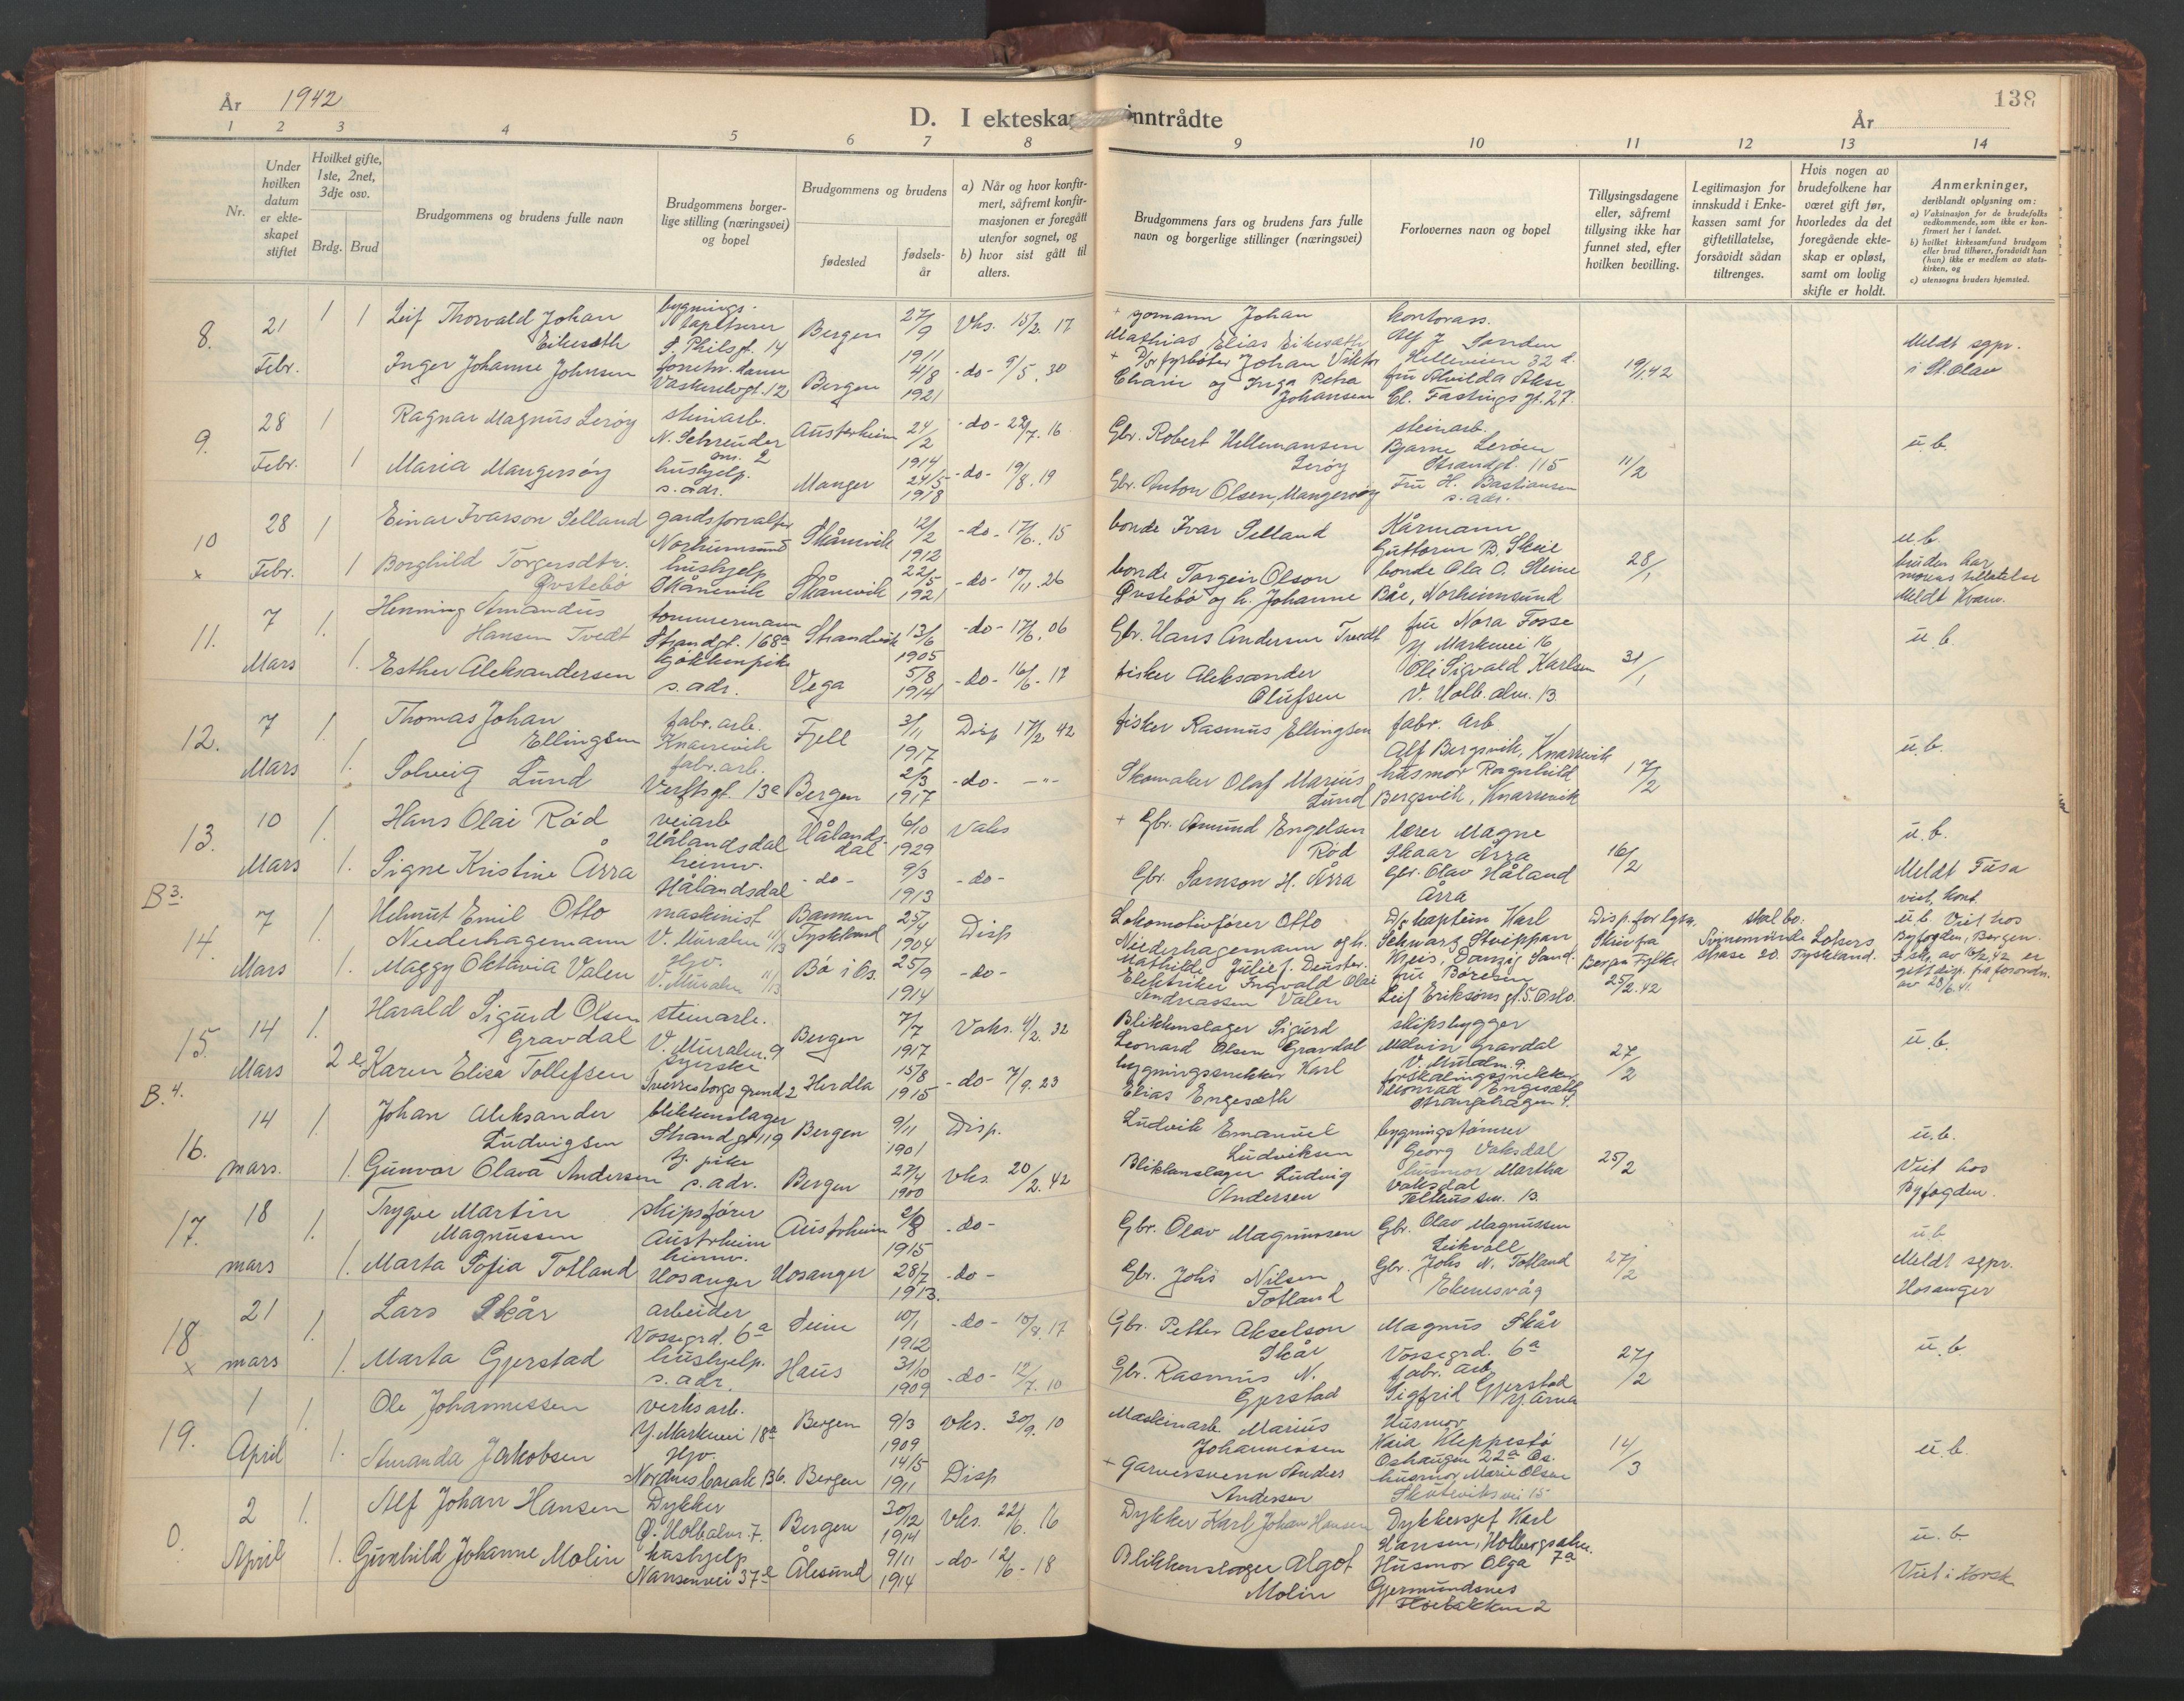 År 1942
D. I ekteska
inntrådte
År
138
1 2 3 4 5 6 7 8 9 10 11 12 13 14
Nr.
Under hvilken datum er ekte-skapet stiftet
Hvilket gifte, 1ste, 2net, 3dje osv.
Brdg. Brud
Brudgommens og brudens fulle navn
Brudgommens borger-lige stilling (næringsvei) og bopel
Brudgommens og brudens
fødested
fødsels-år
a) Når og hvor konfir-mert, såfremt konfir-masjonen er foregått utenfor sognet, og
b) hvor sist gått til alters.
Brudgommens fars og brudens fars fulle navn og borgerlige stillinger (næringsvei)
Forlovernes navn og bopel
Tillysingsdagene eller, såfremt tillysing ikke har funnet sted, efter hvilken bevilling.
Legitimasjon for innskudd i Enke-kassen samt for giftetillatelse, forsåvidt sådan tiltrenges.
Hvis nogen av brudefolkene har været gift før, hvorledes da det foregående ekte-skap er opløst, samt om lovlig skifte er holdt.
Anmerkninger, deriblandt oplysning om:
a) Vaksinasjon for de brudefolks vedkommende, som ikke er kon-firmert her i landet.
b) hvilket kirkesamfund brudgom eller brud tilhører, forsåvidt han (hun) ikke er medlem av stats-kirken, og
c) utensogns bruders hjemsted.
8. 21 Febr. 1 1
Leif Thorvald Johan Eikesæth
bygnings- tapetserer
S. Philsgt. 14
Bergen 27/9 1911 Vks. 15/2. 17
Inger Johanne Johnsen
Bergen 4/8 1921 -do- 9/5. 30
+ Johan Mathias Elias Eikesæth
+ D/s fyrbøter Johan Viktor
og Inga Petra Johansen
kontorass.
Alf J. Sanden
Helleveien 32 d.
fru Alvilda
Cl. Fastings gt. 27.
19/1 42
Meldt sgpr. i St. Olav
9. 28 Febr. 1 1
Ragnar Magnus Lerøy
steinarb.
N. Schreuder sm. 2
Austrheim 24/2 1914 -do- 29/7. 16
Maria Mangersøy
hushjelp.
s. adr.
Manger 24/5 1918 -do- 19/8. 19
Gbr. Robert Hillemansen Lerøy
Gbr. Anton Olsen, Mangersøy
steinarb.
Bjarne Lerøen
Strandgt. 115
Fru H. Bastiansen
s. adr.
11/2
u. b.
10 x 28 Febr. 1 1
Einar Ivarson Selland
gardsforvalter
Norheimsund
Skånevik 12/2 1912 -do- 17/6. 15
Borghild Torgersdtr. Øvstebø
hushjelp
Skånevik
Skånevik 22/5 1921 -do- 17/11. 26
bonde Ivar Selland
bonde Torgeir Olson
Øvstebø og h. Johanne
Kårmann
Guttorm B. Skeie
bonde Ola O. Steine
Båe, Norheimsund
28/1
u. b.
bruden har morens tillatelse
Meldt Kvam.
11. 7 Mars 1. 1.
Henning Amandus Hansen Tvedt
tømmermann
Strandgt. 168a
Strandvik 13/6 1905 -do- 17/6. 06
Esther Aleksandersen
kjøkkenpike
s. adr.
Vega 5/8 1914 -do- 16/6 - 17
Gbr. Hans Andersen Tvedt
fisker Aleksander Olufsen
fru Nora Fosse
Y. Markevei 16
Ole Sigvald Karlsen
V. Holb. alm. 13.
31/1
u. b.
12. 7 Mars 1. 1.
Thomas Johan Ellingsen
fabr. arb.
Knarrevik
Fjell 3/11 1917 Disp 17/2 42
Solveig Lund
fabr. arb.
Verftsgt. 13a
Bergen 2/3 1917 -do- -"-
fisker Rasmus Ellingsen
Skomaker Olaf Marius Lund
fabr. arb
Alf Bergsvik, Knarrevik
husmor Ragnhild
Bergsvik, Knarrevik
17/2
u. b.
13. 10 Mars 1. 1.
Hans Olai Rød
veiarb
Hålandsdal
Hålands-dal 6/10 1929 Vaks
Signe Kristine Årra
heimv.
Hålandsdal
-do- 9/3 1913 -do-
+ Gbr. Amund Engelsen Rød
Gbr. Samson H. Årra
lærer Magne
Skaar Årra
gbr. Olav Håland
Årra
16/2
u. b.
Meldt Fusa
B3. 14. 7 Mars 1. 1.
Helmut Emil Otto Niederhagemann
maskinist
V. Muralm 11/13
Tyskland 25/4 1904 Disp
Maggy Oktavia Valen
Hjv.
V. Muralm 11/13
Bø i Øs. 25/9 1914 -do-
Lokomotivfører Otto
Niederhagemann og h.
Mathilde Julie f. Deuster.
Elektriker Ingvald Olai
Andreassen Valen
D/s kaptein Karl
Schwarz
Kreis, Danzig Land.
fru Børelsen
Leif Eriksøns gt. 5. Oslo.
Disp. for lysn.
Skriv fra
Bergen Fylke
25/2. 42
skal bo:
Svinemünde Lotsen-
strase 20. Tyskland.
viet, kont.
u. b. Viet hos
Byfogden, Bergen.
Skr. av 16/2. 42 er
gitt disp. fra forordn.
av 28/6. 41.
15. 14 Mars 1. 2 e
Harald Sigurd Olsen Gravdal
steinarb.
V. Muralm. 9
Bergen 7/7 1917 Vaks. 4/2. 32
Karen Elise Tollefsen
syerske
Sverresborgs grend 2
Herdla 15/8 1915 -do- 7/9. 23
Blikkenslager Sigurd
Leonard Olsen Gravdal
bygningssnekker Karl
Elias Engesæth
skipsbygger
Malvin Gravdal
V. Muralm. 9.
forskalingssnekker
Konrad Engesæth
Strangehagen 4.
27/2
u. b.
B. 4. 16. 14 mars. 1. 1.
Johan Aleksander Ludvigsen
blikkenslager
Strandgt. 119
Bergen 9/11 1901 Disp.
Gunvor Olava Andersen
tj. pike
s. adr.
Bergen 27/4 1900 vks. 20/2. 42
Ludvik Emanuel Ludviksen
Blikkenslager Ludvig Andersen
bygningstømrer
Georg Vaksdal
husmor Martha
Vaksdal
Telthussm. 13.
25/2
u. b.
Viet hos
Byfogden.
17. 18 mars 1. 1.
Trygve Martin Magnussen
skipsfører
Austrheim
Austrheim 2/8 1915 -do-
Marta Sofia Totland
heimv.
Hosanger
Hosanger 28/7 1913. -do-
Gbr. Olav Magnussen
Gbr. Johs Nilsen Totland
Gbr. Olav Magnussen
Leikvoll
Gbr. Johs N. Totland
Eknesvåg
27/2
u. b.
Meldt sgpr.
Hosanger
18 x 21 mars 1. 1.
Lars Skår
arbeider
Vossegrd. 6a
Seim 10/1 1912 -do- 10/8. 17
Marta Gjerstad
hushjelp.
s. adr.
Haus 31/10 1909 -do- 12/7. 10
Gbr. Petter Akselson Skår
Gbr. Rasmus N. Gjerstad
Magnus Skår
Vossegrd. 6a
fabr. arb.
Sigfrid Gjerstad
Y. Arna
27/2
u. b.
19. 1 April 1. 1.
Ole Johannessen
verksarb.
Y. Markevei 18a
Bergen 9/3 1909 vks. 30/9. 10
Amanda Jakobsen
Hjv.
Nordnesbakk. 13b.
Bergen 14/5 1911 Disp
Maskinarb Marius Johannessen
+ Garversvenn Anders Andersen
Husmor
Kaia Kleppestø
Oshaugen 22a Os.
husmor Marie Olsen
Skuteviksvei 15
14/3
u. b.
0. 2 April 1. 1.
Alf Johan Hansen
Dykker
Ø. Holbalm. 7.
Bergen 30/12 1914 vks. 22/6. 16
Gunhild Johanne Molin
hushjelp
Nansenvei 37e
Ålesund 9/11 1914 -do- 12/6 - 18
Dykker Karl Johan Hansen
Blikkenslager Algot Molin
Dykkersjef Karl
Hansen, Holbergsalm. 7a
Husmor Olga
Gjermundsnes
u. b
Viet i korsk